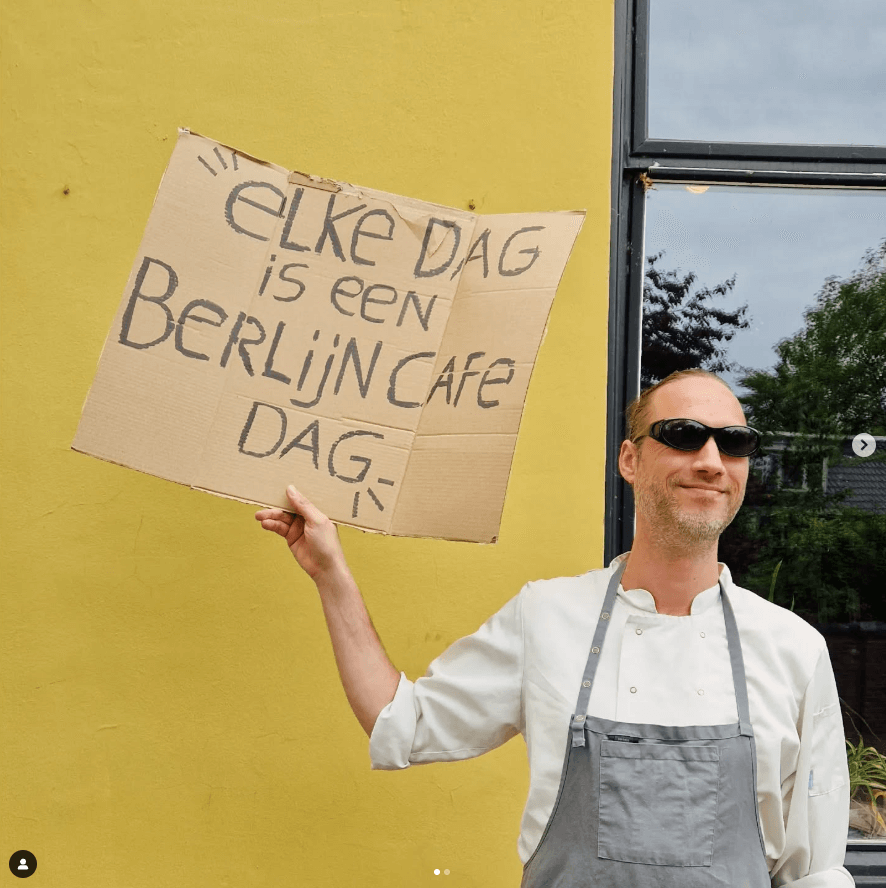 eLKe DAG
is een
BeRLijN CAFe
DAG